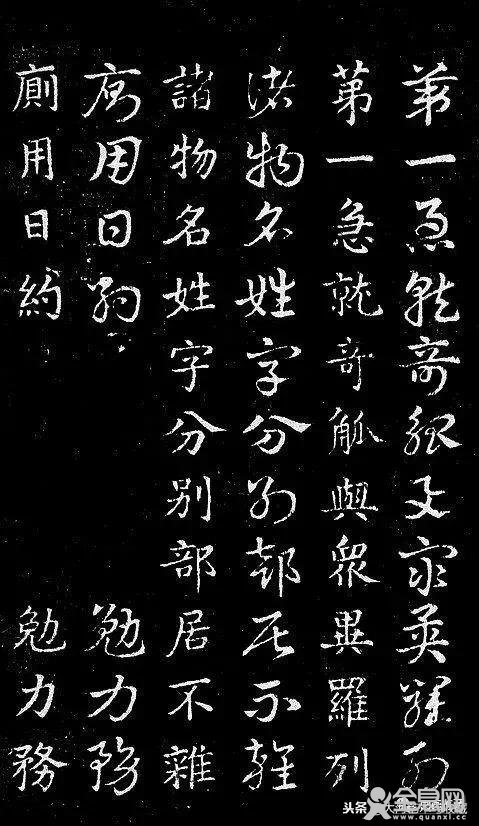 第一急就奇觚與眾異羅列
第一急就奇觚與眾異羅列
諸物名姓字分別部居不雜
諸物名姓字分別部居不雜
廁用日約 勉力務
廁用日約 勉力務
头条
全息网
www.quanxi.cc